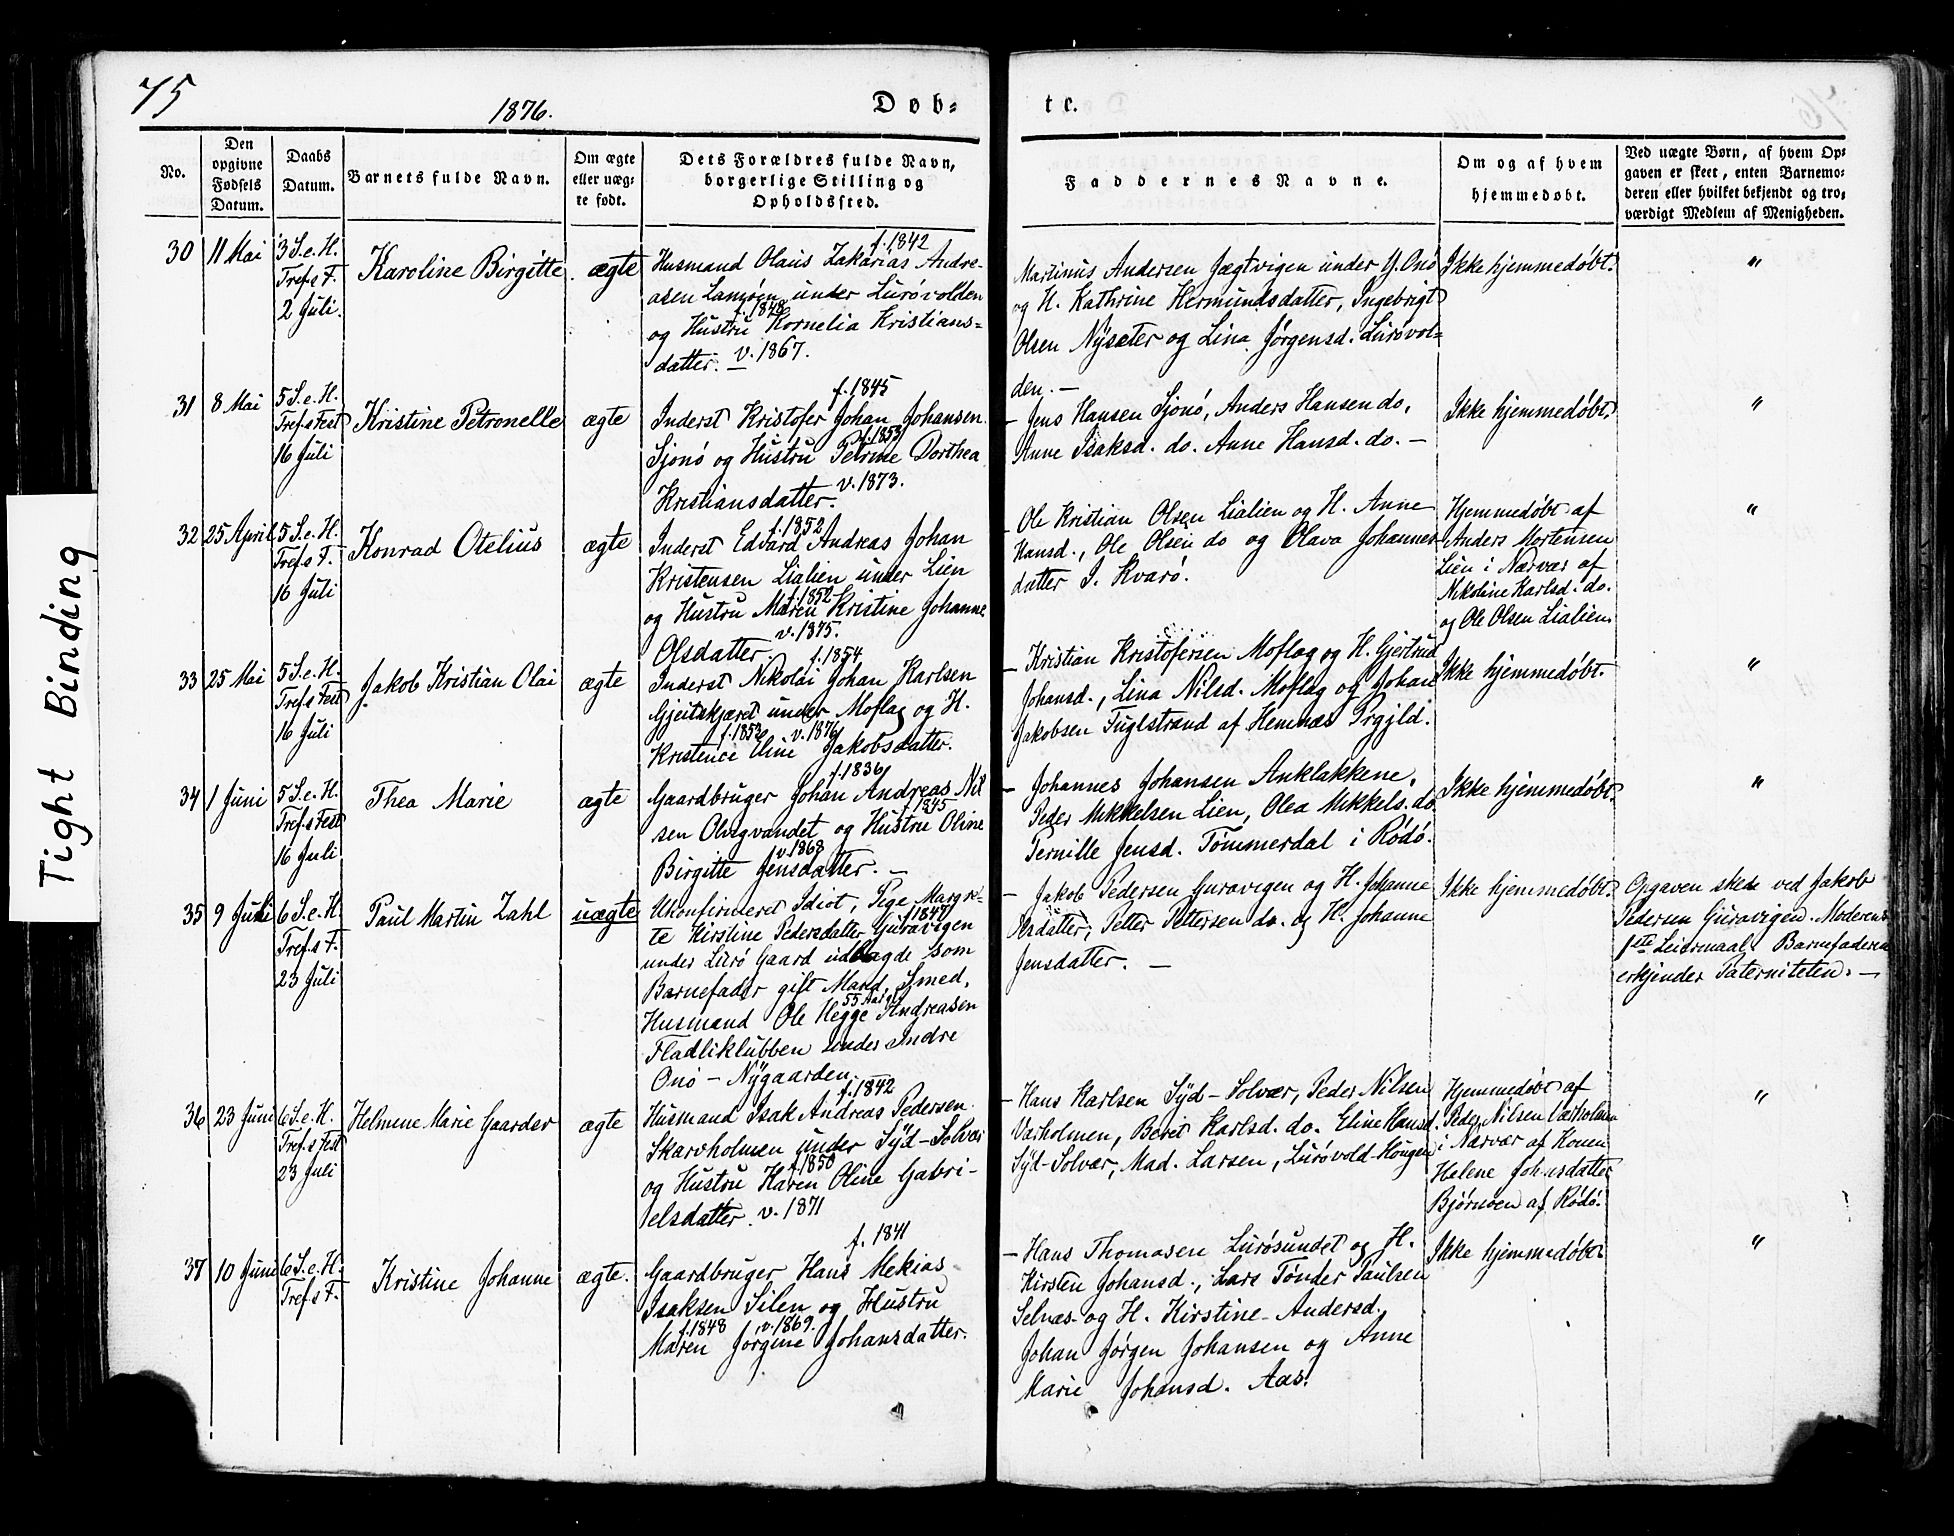 75
1876.
Døb-
te.
No.
Den opgivne Fødsels Datum.
Daabs Datum.
Barnets fulde Navn.
Om ægte eller uægte født.
Dets Forældres fulde Navn, borgerlige Stilling og Opholdssted.
Faddernes Navne.
Om og af hvem hjemmedøbt.
Ved uægte Børn, af hvem Opgaven er skeet, enten Barnemoderen eller hvilket bekjendt og troværdigt Medlem af Menigheden.
30
11 Mai
3 S. e. H.
Tref.s F.
2 Juli.
Karoline Birgitte
ægte
f. 1842
Husmand Olaus Zakarias Andre-
asen under Lurøvolden
f. 1848
og Hustru Kornelia Kristians-
datter. v. 1867.
Martinus Andersen Jægtvigen under Y. Onø
og H. Kathrine Hermundsdatter, Ingebrigt
Olsen Nysæter og Lina Jørgensd. Lurøvol-
den. —
Ikke hjemmedøbt.
"
31
8 Mai
5 S. e. H.
Tref.s Fest
16 Juli
Kristine Petronelle
ægte
f. 1845
Inderst Kristofer Johan Johansen
f. 1853
Sjonø og Hustru Petrine Dorthea
Kristiansdatter. v. 1873.
— Jens Hansen Sjonø, Anders Hansen do,
Anne Isaksd. do. Anne Hansd. do. —
Ikke hjemmedøbt.
"
32
25 April
5 S. e. H.
Tref.s F.
16 Juli
Konrad Otelius
ægte
f. 1852
Inderst Edvard Andreas Johan
Kristensen Lialien under Lien
f. 1852
og Hustru Maren Kristine Johanne
Olsdatter. v. 1875.
— Ole Kristian Olsen Lialien og H. Anne
Hansd., Ole Olsen do og Olava Johannes-
datter I. Kvarø.
Hjemmedøbt af
Anders Mortensen
Lien i Nærvær af
Nikoline Karlsd. do.
og Ole Olsen Lialien
"
33
25 Mai
5 S. e. H.
Tref.s Fest
16 Juli
Jakob Kristian Olai
ægte
f. 1854
Inderst Nikolai Johan Karlsen
Gjeitskjæret under Moflag og H.
f. 1852 v. 1876
Kristence Eline Jakobsdatter.
— Kristian Kristofersen Moflag og H. Gjertrud
Johansd., Lina Nilsd. Moflag og Johan
Jakobsen Fuglstrand af Hemnæs Prgjld.
Ikke hjemmedøbt.
"
34
1 Juni
5 S. e. H.
Tref.s Fest
16 Juli
Thea Marie
ægte
f. 1836
Gaardbruger Johan Andreas Nil
f. 1845
sen Olvigvandet og Hustru Oline
v. 1868
Birgitte Jensdatter. —
— Johannes Johansen Anklakkene,
Peder Mikkelsen Lien, Olea Mikkels. do
Pernille Jensd. Tømmerdal i Rödö.
Ikke hjemmedøbt.
"
35
9 Juni
6 S. e. H.
Tref.s F.
23 Juli
Paul Martin Zahl
uægte
Ukonfirmeret Idiot, Pige Margre-
f. 1847
te Kirstine Pedersdatter Guravigen
under Lurø Gaard udlagde som
Barnefader gift Mand, Smed,
55 Aar gl
Husmand Ole Hegge Andreasen
Fladliklubben under Indre
Onø — Nygaarden.
— Jakob Pedersen Guravigen og H. Johanne
Arsdatter, Petter Pettersen do. og H. Johanne
Jensdatter. —
Ikke hjemmedøbt.
Opgaven skede ved Jakob
Pedersen Guravigen. Moderens
1ste Leiermaal. Barnefaderen
erkjender Paterniteten. —
36
23 Juni
6 S. e. H.
Tref.s Fest
23 Juli
Helmine Marie Gaarder
ægte
f. 1842
Husmand Isak Andreas Pedersen
Skarvholmen under Syd-Solvær
f. 1850
og Hustru Karen Oline Gabri-
elsdatter. v. 1871
— Hans Karlsen Syd-Solvær, Peder Nilsen
Værholmen, Beret Karlsd. do. Eline Hansd.
Syd-Solvær, Mad. Larsen, Lurøvold-Hougen
Hjemmedøbt af
Peder Nilsen Værholmen
i Nærvær af Konen
Helene Johnsdatter
Bjørnøen af Rödö.
"
37
10 Juni
6 S. e. H.
Tref.s F.
Kristine Johanne
ægte.
f. 1841
Gaardbruger Hans Mekias
Isaksen Silen og Hustru
f. 1848 v. 1869.
Maren Jørgine Johansdatter.
— Hans Thomasen Lurøsundet og H.
Kirsten Johansd., Lars Tønder Paulsen
Selnæs og H. Kirstine Andersd.
Johan Jørgen Johansen og Anne
Marie Johansd. Aas.
Ikke hjemmedøbt
"
Tight Binding